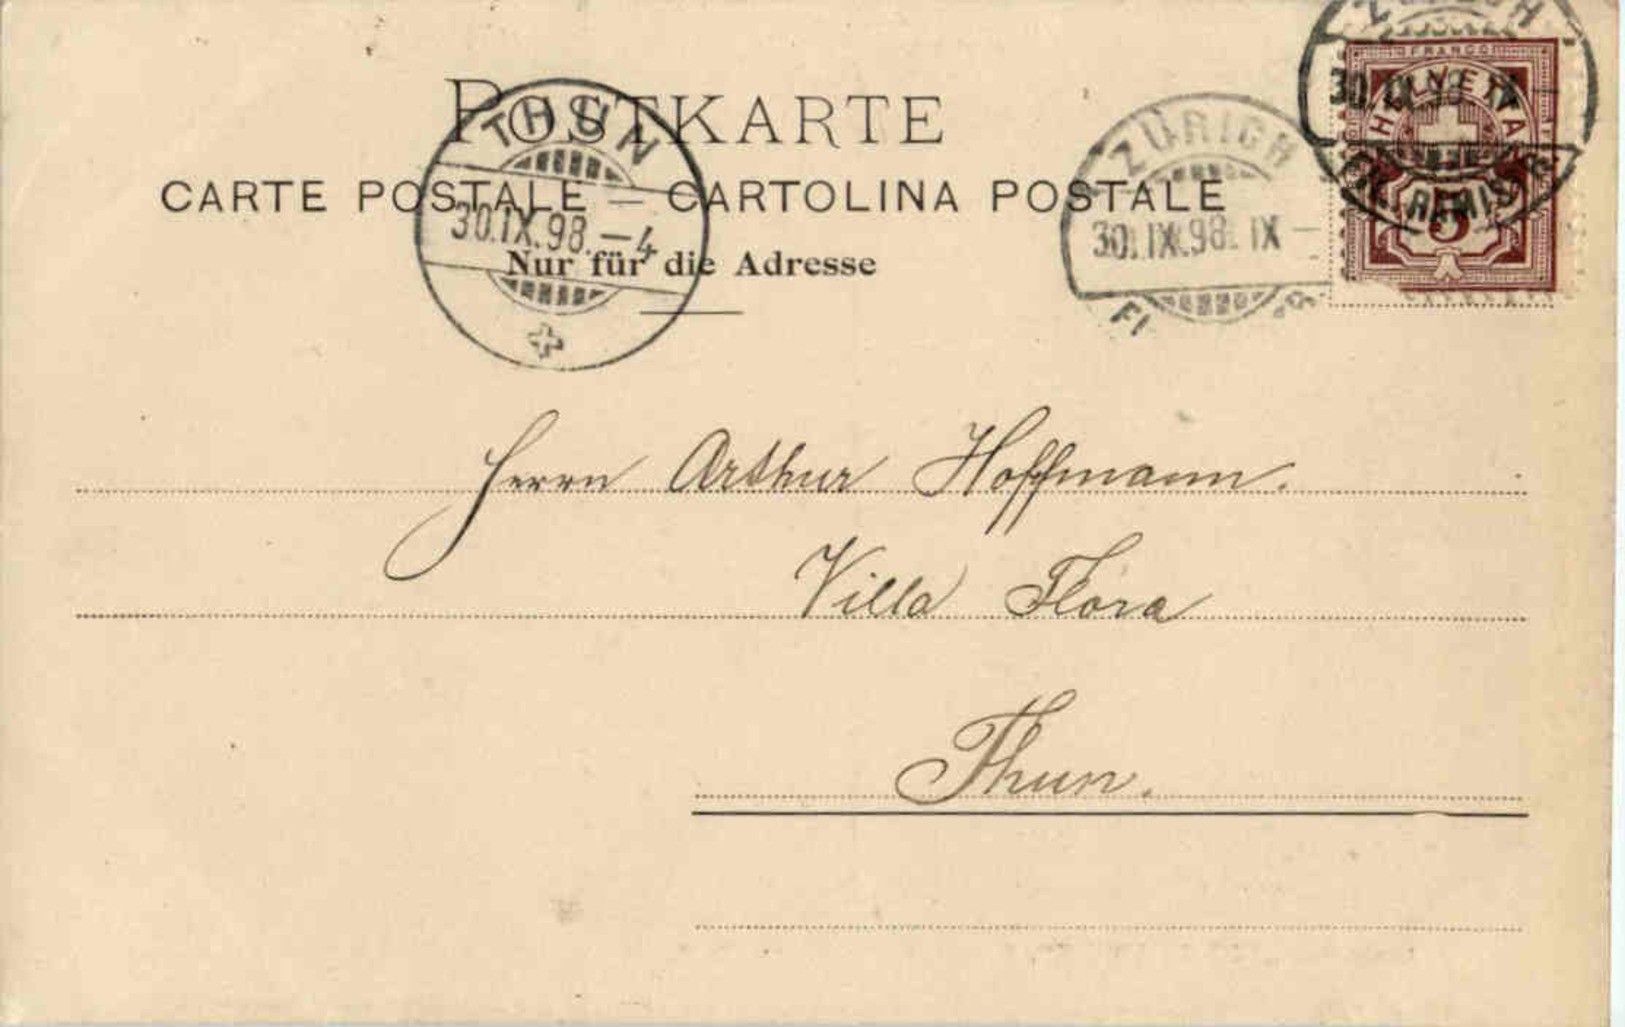 POSTKARTE
CARTE POSTALE — CARTOLINA POSTALE
Nur für die Adresse
THUN
30.IX.98.–4
ZÜRICH
30.IX.98. IX –
ZÜRICH
30.IX.98
FRANCO
HELVETIA
5
Herrn Arthur Hoffmann.
Villa Flora
Thun.